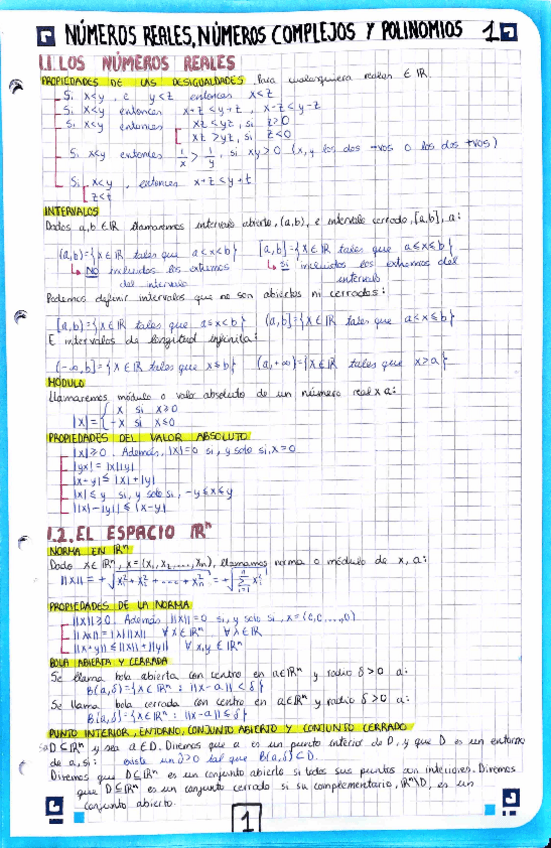 NÚMEROS REALES, NÚMEROS COMPLEJOS Y POLINOMIOS 1
1.1. LOS NÚMEROS REALES
PROPIEDADES DE LAS DESIGUALDADES. Para cualesquiera reales ∈ ℝ.
Si x<y, e y<z entonces x<z
Si x<y entonces x+z<y+z, x-z<y-z
Si x<y entonces xz<yz, si z>0
xz>yz, si z<0
Si x<y entonces 1/x > 1/y, si xy>0 (x,y los dos -vos o los dos +vos)
Si x<y, entonces x+z<y+t
z<t
INTERVALOS
Dados a,b ∈ ℝ llamaremos intervalo abierto, (a,b), e intervalo cerrado, [a,b], a:
(a,b)={x∈ℝ tales que a<x<b} [a,b]={x∈ℝ tales que a≤x≤b}
↳ NO incluidos los extremos ↳ SI incluidos los extremos del
del intervalo intervalo
Podemos definir intervalos que no son abiertos ni cerrados:
[a,b)={x∈ℝ tales que a≤x<b} (a,b]={x∈ℝ tales que a<x≤b}
E intervalos de longitud infinita:
(-∞,b]={x∈ℝ tales que x≤b} (a,+∞)={x∈ℝ tales que x>a}
MÓDULO
Llamaremos módulo o valor absoluto de un número real x a:
|x|={ x si x≥0
-x si x≤0
PROPIEDADES DEL VALOR ABSOLUTO
|x|≥0. Además, |x|=0 si, y solo si, x=0
|yx|=|x||y|
|x-y|≤|x|+|y|
|x|≤y si, y solo si, -y≤x≤y
||x|-|y||≤|x-y|
1.2. EL ESPACIO ℝⁿ
NORMA EN ℝⁿ
Dado x∈ℝⁿ, x=(x₁,x₂,...,xₙ), llamamos norma o módulo de x, a:
||x||=+√x₁²+x₂²+...+xₙ² =+√∑ᵢ₌₁ⁿ xᵢ²
PROPIEDADES DE LA NORMA
||x||≥0. Además ||x||=0 si, y solo si, x=(0,0,...,0)
||λx||=|λ|||x|| ∀x∈ℝⁿ ∀λ∈ℝ
||x+y||≤||x||+||y|| ∀x,y∈ℝⁿ
BOLA ABIERTA Y CERRADA
Se llama bola abierta con centro en a∈ℝⁿ y radio δ>0 a:
B(a,δ)={x∈ℝⁿ : ||x-a||<δ}
Se llama bola cerrada con centro en a∈ℝⁿ y radio δ>0 a:
B(a,δ)={x∈ℝⁿ : ||x-a||≤δ}
PUNTO INTERIOR, ENTORNO, CONJUNTO ABIERTO Y CONJUNTO CERRADO
D⊆ℝⁿ y sea a∈D. Diremos que a es un punto interior de D, y que D es un entorno
de a, si: existe un δ>0 tal que B(a,δ)⊂D.
Diremos que D⊆ℝⁿ es un conjunto abierto si todos sus puntos son interiores. Diremos
que D⊆ℝⁿ es un conjunto cerrado si su complementario, ℝⁿ\D, es un
conjunto abierto.
1